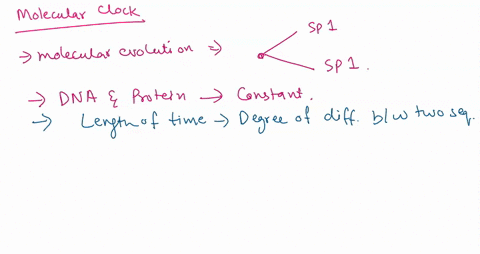 Molecular Clock
→ molecular evolution ⇒
SP 1
SP 1.
→ DNA & Protein → Constant.
→ Length of time → Degree of diff. b/w two seq.